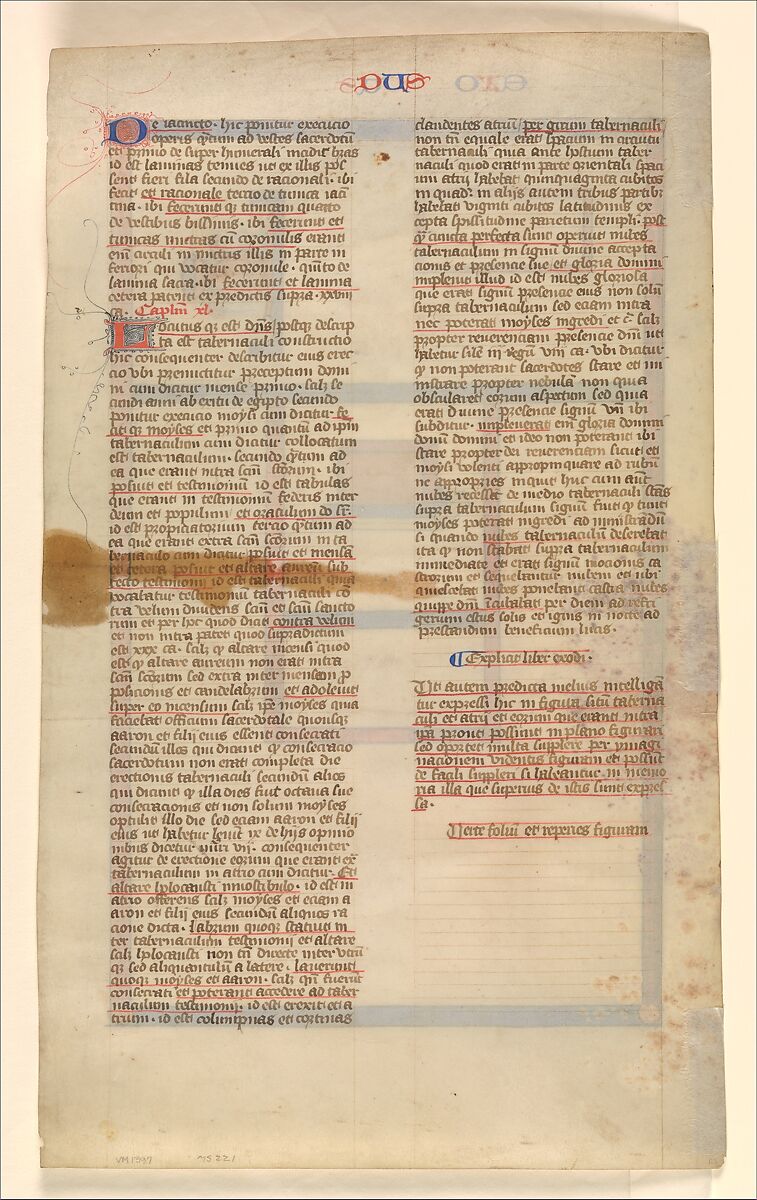 DUS
De iacincto · hic ponitur execucio
operis q̄tum ad vestes sacerdotū
et primo de super humerali incidit bras
id est laminas tenues ut ex illis pos
sent fieri fila secundo de racionali · ibi
fecit et racionale tercio de tunica iaci
tina · ibi fecerunt q; tunicam quarto
de vestibus bissinis · ibi fecerunt et
tunicas
eni circuli in parte in
feriori qui vocatur coronule · quīto de
lamina sacra · ibi fecerunt et lamina
cetera patent ex predictis supra · xxviii
ca · Capl'm xl ·
Locutus q; est dn̄s / postq; descrip
ta est tabernaculi constructio
hic consequenter describitur eius erec
cio vbi premictitur preceptum domi
ni cum dicitur mense primo · scilz se
cundi anni ab exitu de egipto secundo
ponitur execucio moysi cum dicitur fe
cit q; moyses et primo quantū ad ip̄m
tabernaculum cum dicitur collocatum
est tabernaculum · secundo q̄tum ad
ea que erant intra scm̄ scorum · ibi
posuit et testimoniū id est tabulas
que erant in testimoniū federis inter
deum et populum et oraculum
id est propiciatorium tercio q̄tum ad
ea que erant extra scm̄ scorum in ta
bernaculo cum dicitur posuit et mensā
et cetera posuit et altare aureū sub
tecto testimonii id est tabernaculi quia
vocabatur testimoniū tabernaculi cō
tra velum dividens scm̄ et scm̄ sancto
rum et per hoc quod dicit contra velum
et non intra patet quod supradictum
est xxx ca · scilz q̄ altare incensi quod
est q̄ altare aureum non erat intra
scm̄ scorum sed extra inter mensam p̄
posicionis et candelabrum et adolevit
super eo incensum scilz ip̄e moyses quia
faciebat officium sacerdotale quousq;
aaron et filii eius essent consecrati
secundū illos qui dicunt q̄ consecracio
sacerdotum non erat completa die
erectionis tabernaculi secundū alios
qui dicunt q̄ illa dies fuit octava sue
consecracionis et non solum moyses
optulit illo die sed eciam aaron et filii
eius ut habetur levit ix de hijs opinio
nibus dicetur · consequenter
agitur de erectione eorum que erant ex̄
tabernaculum in atrio cum dicitur · Et
altare holocausti in vestibulo · id est in
atrio offerens scilz moyses et eciam a
aron et filii eius secundū aliquos ra
cione dicta · labrum quoq; statuit in
ter tabernaculum testimonii et altare
scilz holocausti non tn̄ directe inter utrū
q; sed aliquantulū a latere · laverunt
quoq; moyses et aaron · scilz qn̄ fuerūt
consecrati et poterant accedere ad taber
naculum testimonii · id est erexit et a
trium · id est columpnas et cortinas
claudentes atriū / per girum tabernaculi
non tn̄ equale erat spacium in circuitu
tabernaculi quia ante hostium taber
naculi quod erat in parte orientali spaci
um atrii habebat quinquaginta cubitos
in quadr̄ · in alijs autem tribus partibz
habebat viginti cubitos latitudinis ex
cepta spissitudine parietum templi · post
q̄ cuncta perfecta sunt operuit nubes
tabernaculum in signū divine accepta
cionis et presencie sue et gloria domini
implevit illud id est nubes gloriosa
que erat signū presencie eius non solū
supra tabernaculum sed eciam intra
nec poterat moyses ingredi et c̄ scilz
propter reverenciam presencie dn̄i ut
habetur sile iii regū viii ca · vbi dicitur
q̄ non poterant sacerdotes stare et mi
nistrare propter nebulā non quia
obscularet eorum aspectum sed quia
erat divine presencie signū vn̄ ibi
subditur · impleverat eni gloria domini
domū domini et ideo non poterant ibi
stare propter dei reverenciam sicut et
moysi volenti appropinquare ad rubū
ne appropries inquit huc cum aut
nubes recessit de medio tabernaculi stās
supra tabernaculum signū fuit q̄ tunc
moyses poterat ingredi ad ministrādū
si quando nubes tabernaculū deserebat
ita q̄ non stabat supra tabernaculum
immediate et erat signū mocionis ca
strorum et sequebantur nubem et ubi
quiescebat nubes ponebant castra nubes
quippe dn̄i īcubabat per diem ad refri
gerium estus solis et ignis in nocte ad
prestandum beneficium lucis ·
¶ Explicit liber exodi ·
Ut autem predicta melius intelligā
tur expressi hic in figura situ taberna
culi et atrii et eorum que erant intra
ip̄a prout possunt in plano figurari
sed oportet multa supplere per ymagi
nacionem videntis figuram et possūt
de facili suppleri si habeantur in memo
ria illa que superius de istis sunt expres
sa ·
Verte foliū et reperies figuram
VM 1397 MS 221